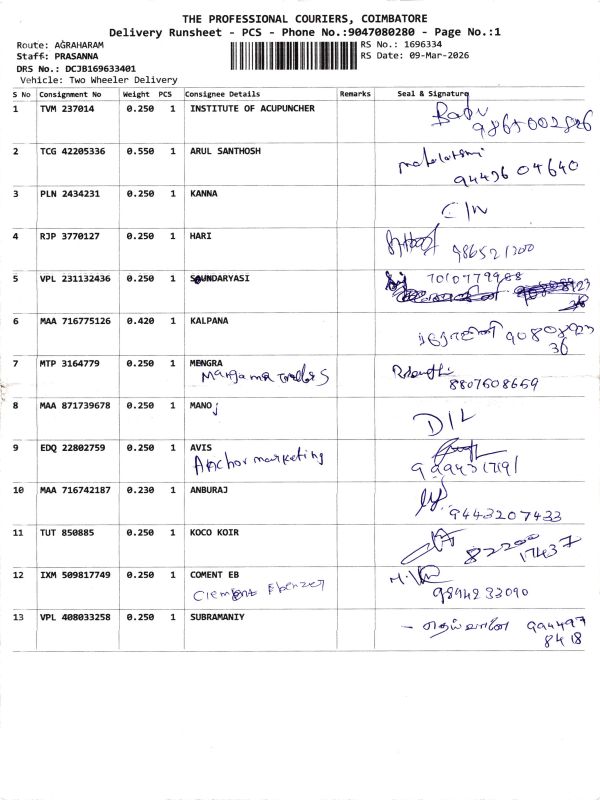 THE PROFESSIONAL COURIERS, COIMBATORE
Delivery Runsheet - PCS - Phone No.:9047080280 - Page No.:1
Route: AGRAHARAM
Staff: PRASANNA
DRS No.: DCJB169633401
Vehicle: Two Wheeler Delivery
RS No.: 1696334
RS Date: 09-Mar-2026
S No Consignment No Weight PCS Consignee Details Remarks Seal & Signature
1 TVM 237014 0.250 1 INSTITUTE OF ACUPUNCHER Babu
2 TCG 42205336 0.550 1 ARUL SANTHOSH
9443604640
3 PLN 2434231 0.250 1 KANNA
4 RJP 3770127 0.250 1 HARI
5 VPL 231132436 0.250 1 SOUNDARYASI 7010779988
6 MAA 716775126 0.420 1 KALPANA
9080892336
7 MTP 3164779 0.250 1 MENGRA
8807508659
8 MAA 871739678 0.250 1 MANOj
D/L
9 EDQ 22802759 0.250 1 AVIS
Anchor marketing
10 MAA 716742187 0.230 1 ANBURAJ
9443207433
11 TUT 850885 0.250 1 KOCO KOIR
82200
17437
12 IXM 509817749 0.250 1 COMENT EB
Clement Ebenzer 9894233090
13 VPL 408033258 0.250 1 SUBRAMANIY
- தெய்வானை 994497
8418